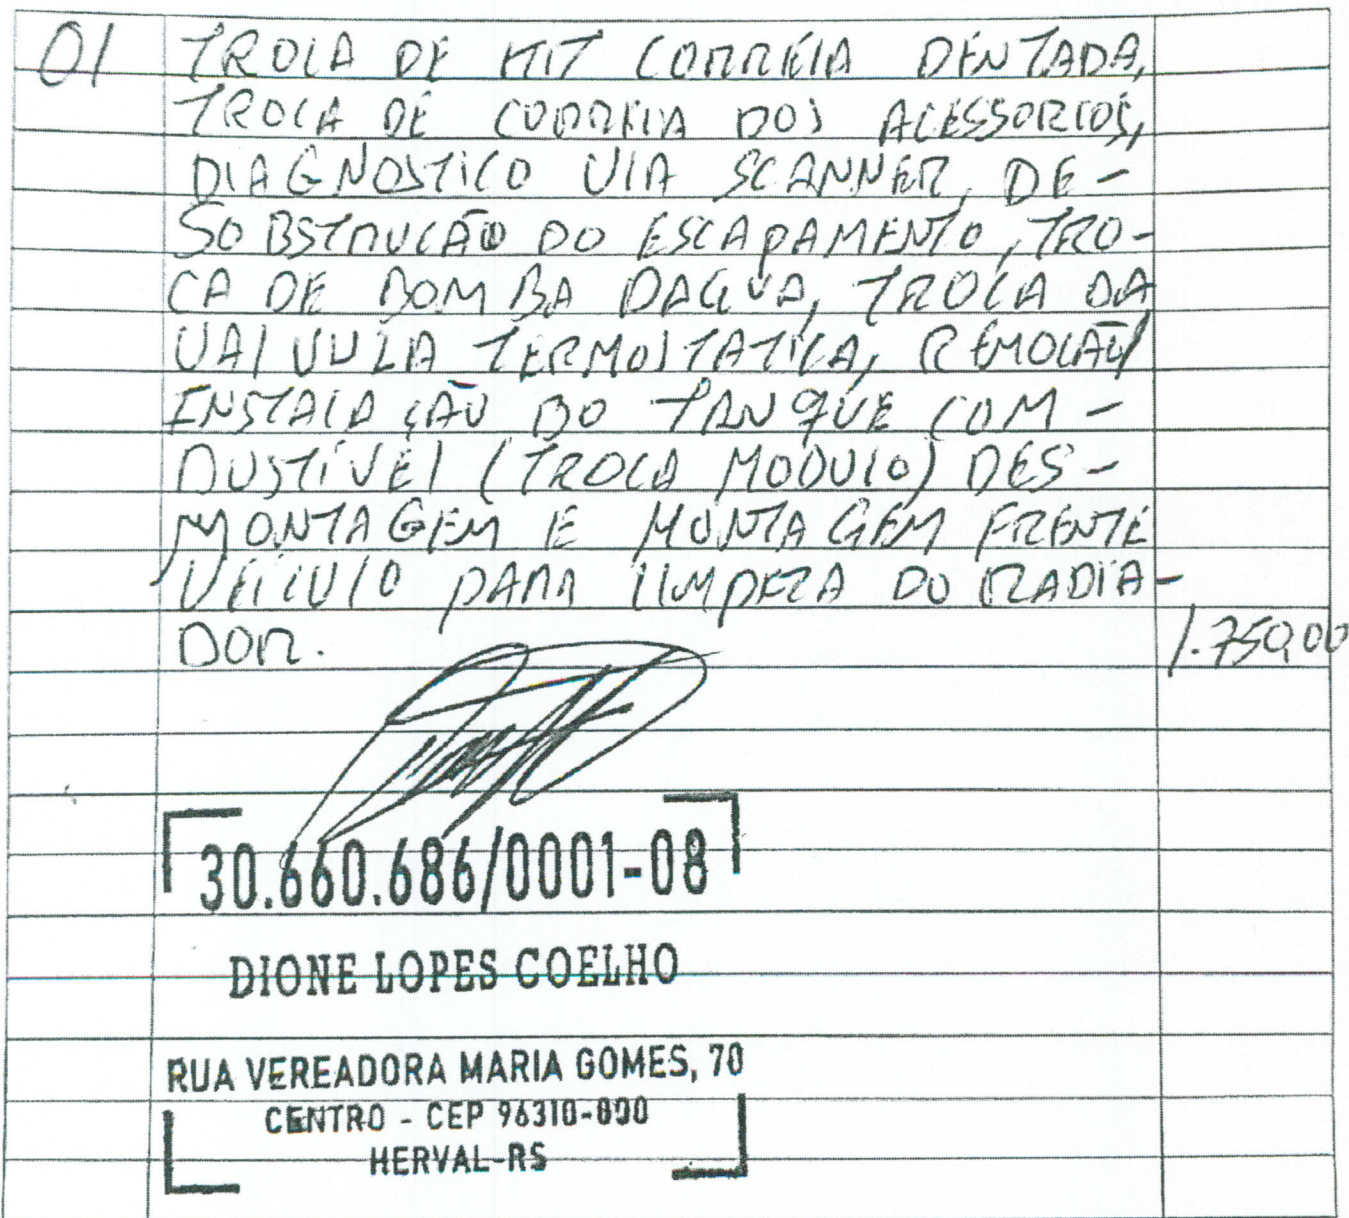 01 TROCA DE KIT CORREIA DENTADA,
TROCA DE CORREIA DOS ACESSORIOS,
DIAGNOSTICO VIA SCANNER, DE-
SOBSTRUCÃO DO ESCAPAMENTO, TRO-
CA DE BOMBA DAGUA, TROCA DA
VALVULA TERMOSTATICA, REMOCÃO/
INSTALAÇÃO DO TANQUE COM-
BUSTÍVEL (TROCA MODULO) DES-
MONTAGEM E MONTAGEM FRENTE
VEICULO PARA LIMPEZA DO RADIA-
DOR. 1.750,00
30.660.686/0001-08
DIONE LOPES COELHO
RUA VEREADORA MARIA GOMES, 70
CENTRO - CEP 96310-000
HERVAL-RS